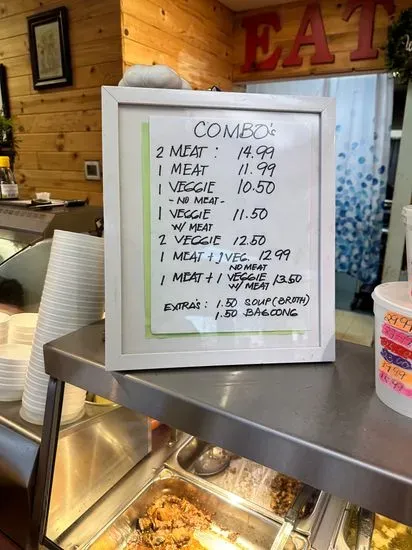 EAT
COMBO's
2 MEAT : 14.99
1 MEAT 11.99
1 VEGGIE 10.50
- NO MEAT -
1 VEGGIE 11.50
W/ MEAT
2 VEGGIE 12.50
1 MEAT + 1 VEG. 12.99
NO MEAT
1 MEAT + 1 VEGGIE 13.50
W/ MEAT
EXTRA'S : 1.50 SOUP (BROTH)
1.50 BAGOONG